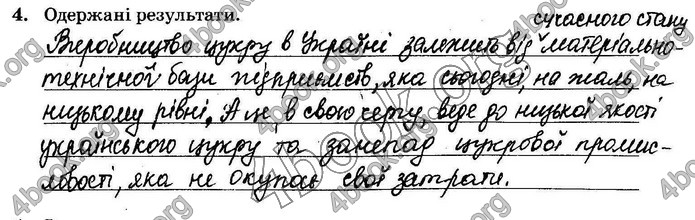 4. Одержані результати.
сучасного стану
Виробництво цукру в Україні залежить від матеріально-
технічної бази підприємств, яка сьогодні, на жаль, на
низькому рівні. А це, в свою чергу, веде до низької якості
українського цукру та занепад цукрової промис-
ловості, яка не окупає свої затрати.
4book.org